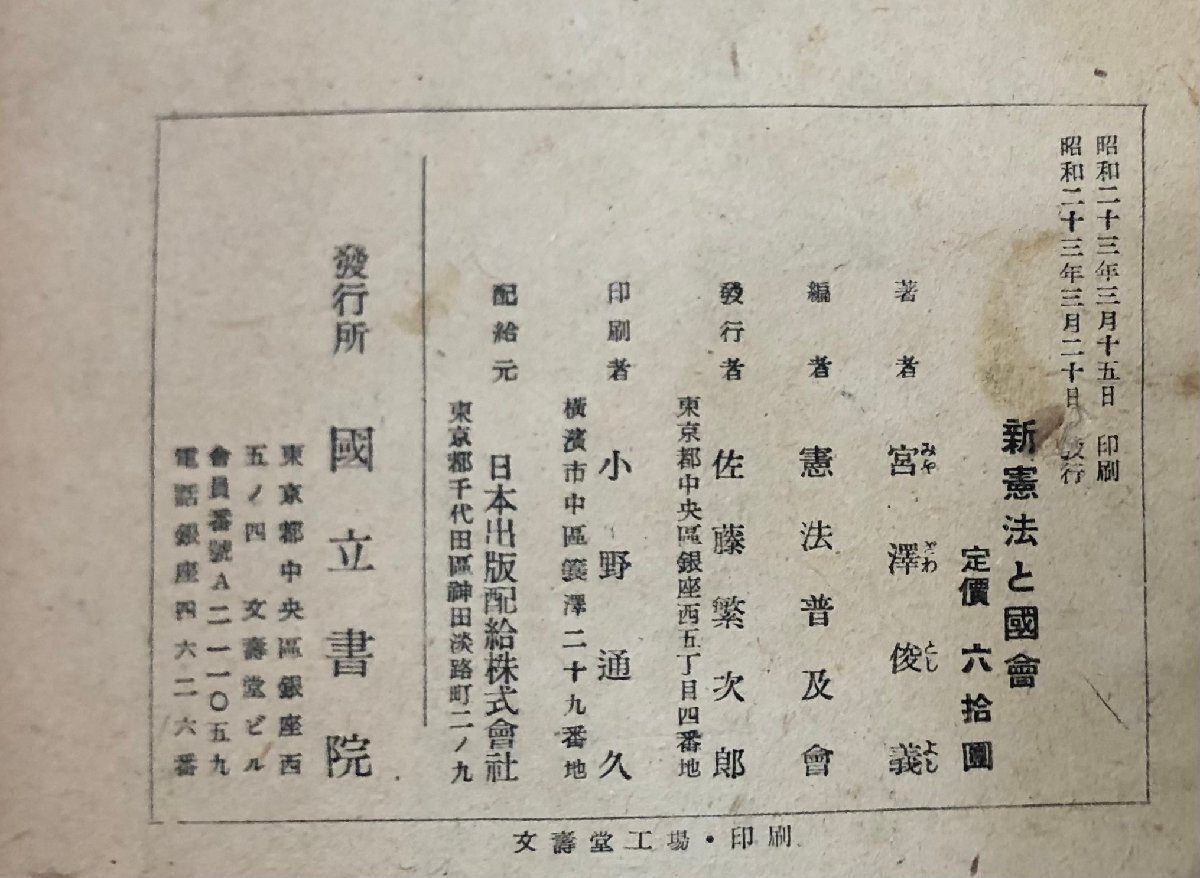 昭和二十三年三月十五日 印刷
昭和二十三年三月二十日 發行
新憲法と國會
定價 六拾圓
著者 宮澤俊義
みや ざわ とし よし
編者 憲法普及會
發行者 佐藤繁次郎
東京都中央區銀座西五丁目四番地
印刷者 小野通久
橫濱市中區簑澤二十九番地
配給元 日本出版配給株式會社
東京都千代田區神田淡路町二ノ九
發行所 國立書院
東京都中央區銀座西
五ノ四 文壽堂ビル
會員番號A二一一〇五九
電話銀座四六二六番
文壽堂工場・印刷